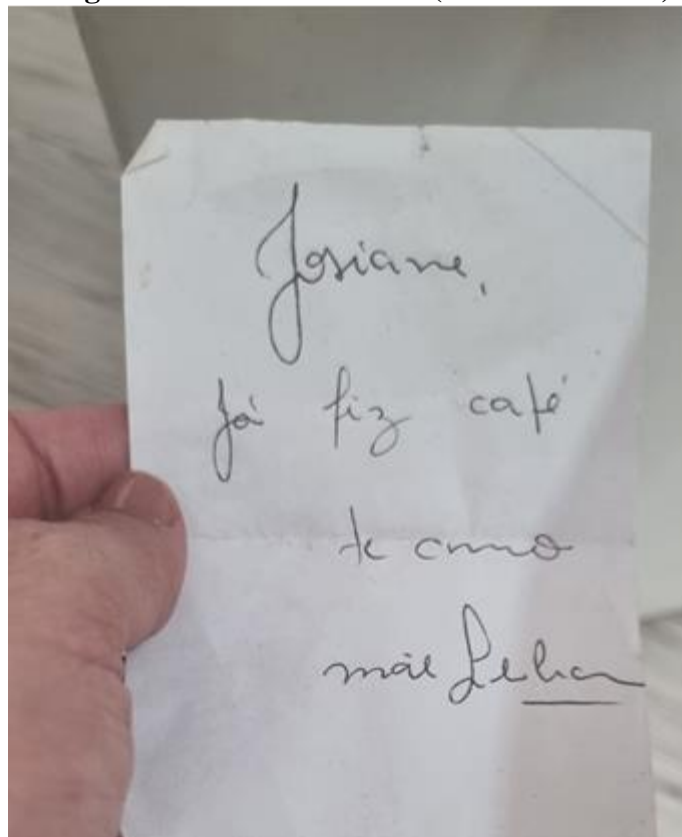 Josiane,
Já fiz café
te amo
mãe